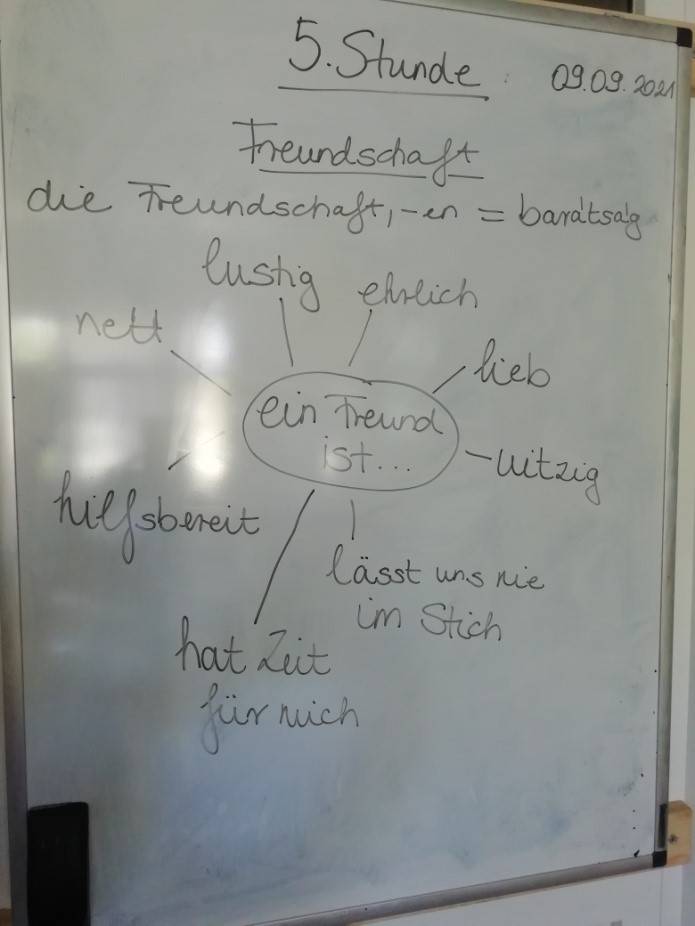 5. Stunde
09.09.2021
Freundschaft
die Freundschaft, -en = barátság
lustig
ehrlich
nett
lieb
ein Freund
ist...
witzig
hilfsbereit
lässt uns nie
im Stich
hat Zeit
für mich